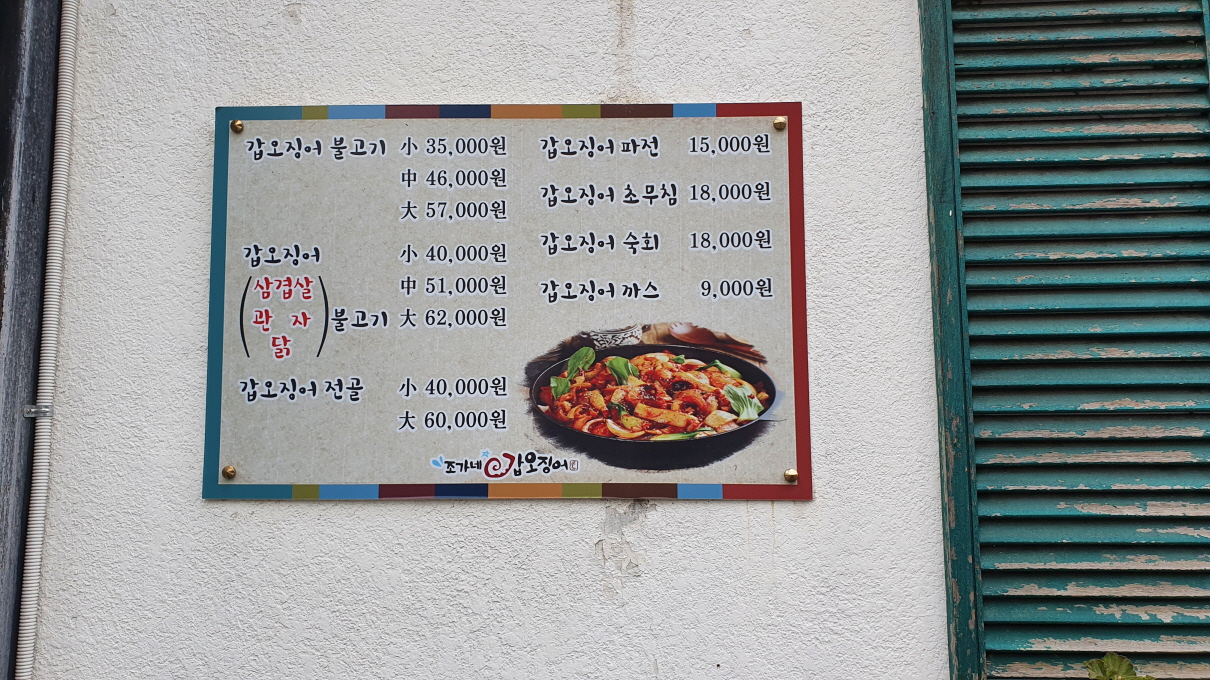 갑오징어 불고기 小 35,000원
中 46,000원
大 57,000원
갑오징어 小 40,000원
(삼겹살 中 51,000원
관 자 불고기 大 62,000원
닭)
갑오징어 전골 小 40,000원
大 60,000원
갑오징어 파전 15,000원
갑오징어 초무침 18,000원
갑오징어 숙회 18,000원
갑오징어 까스 9,000원
조가네 갑오징어